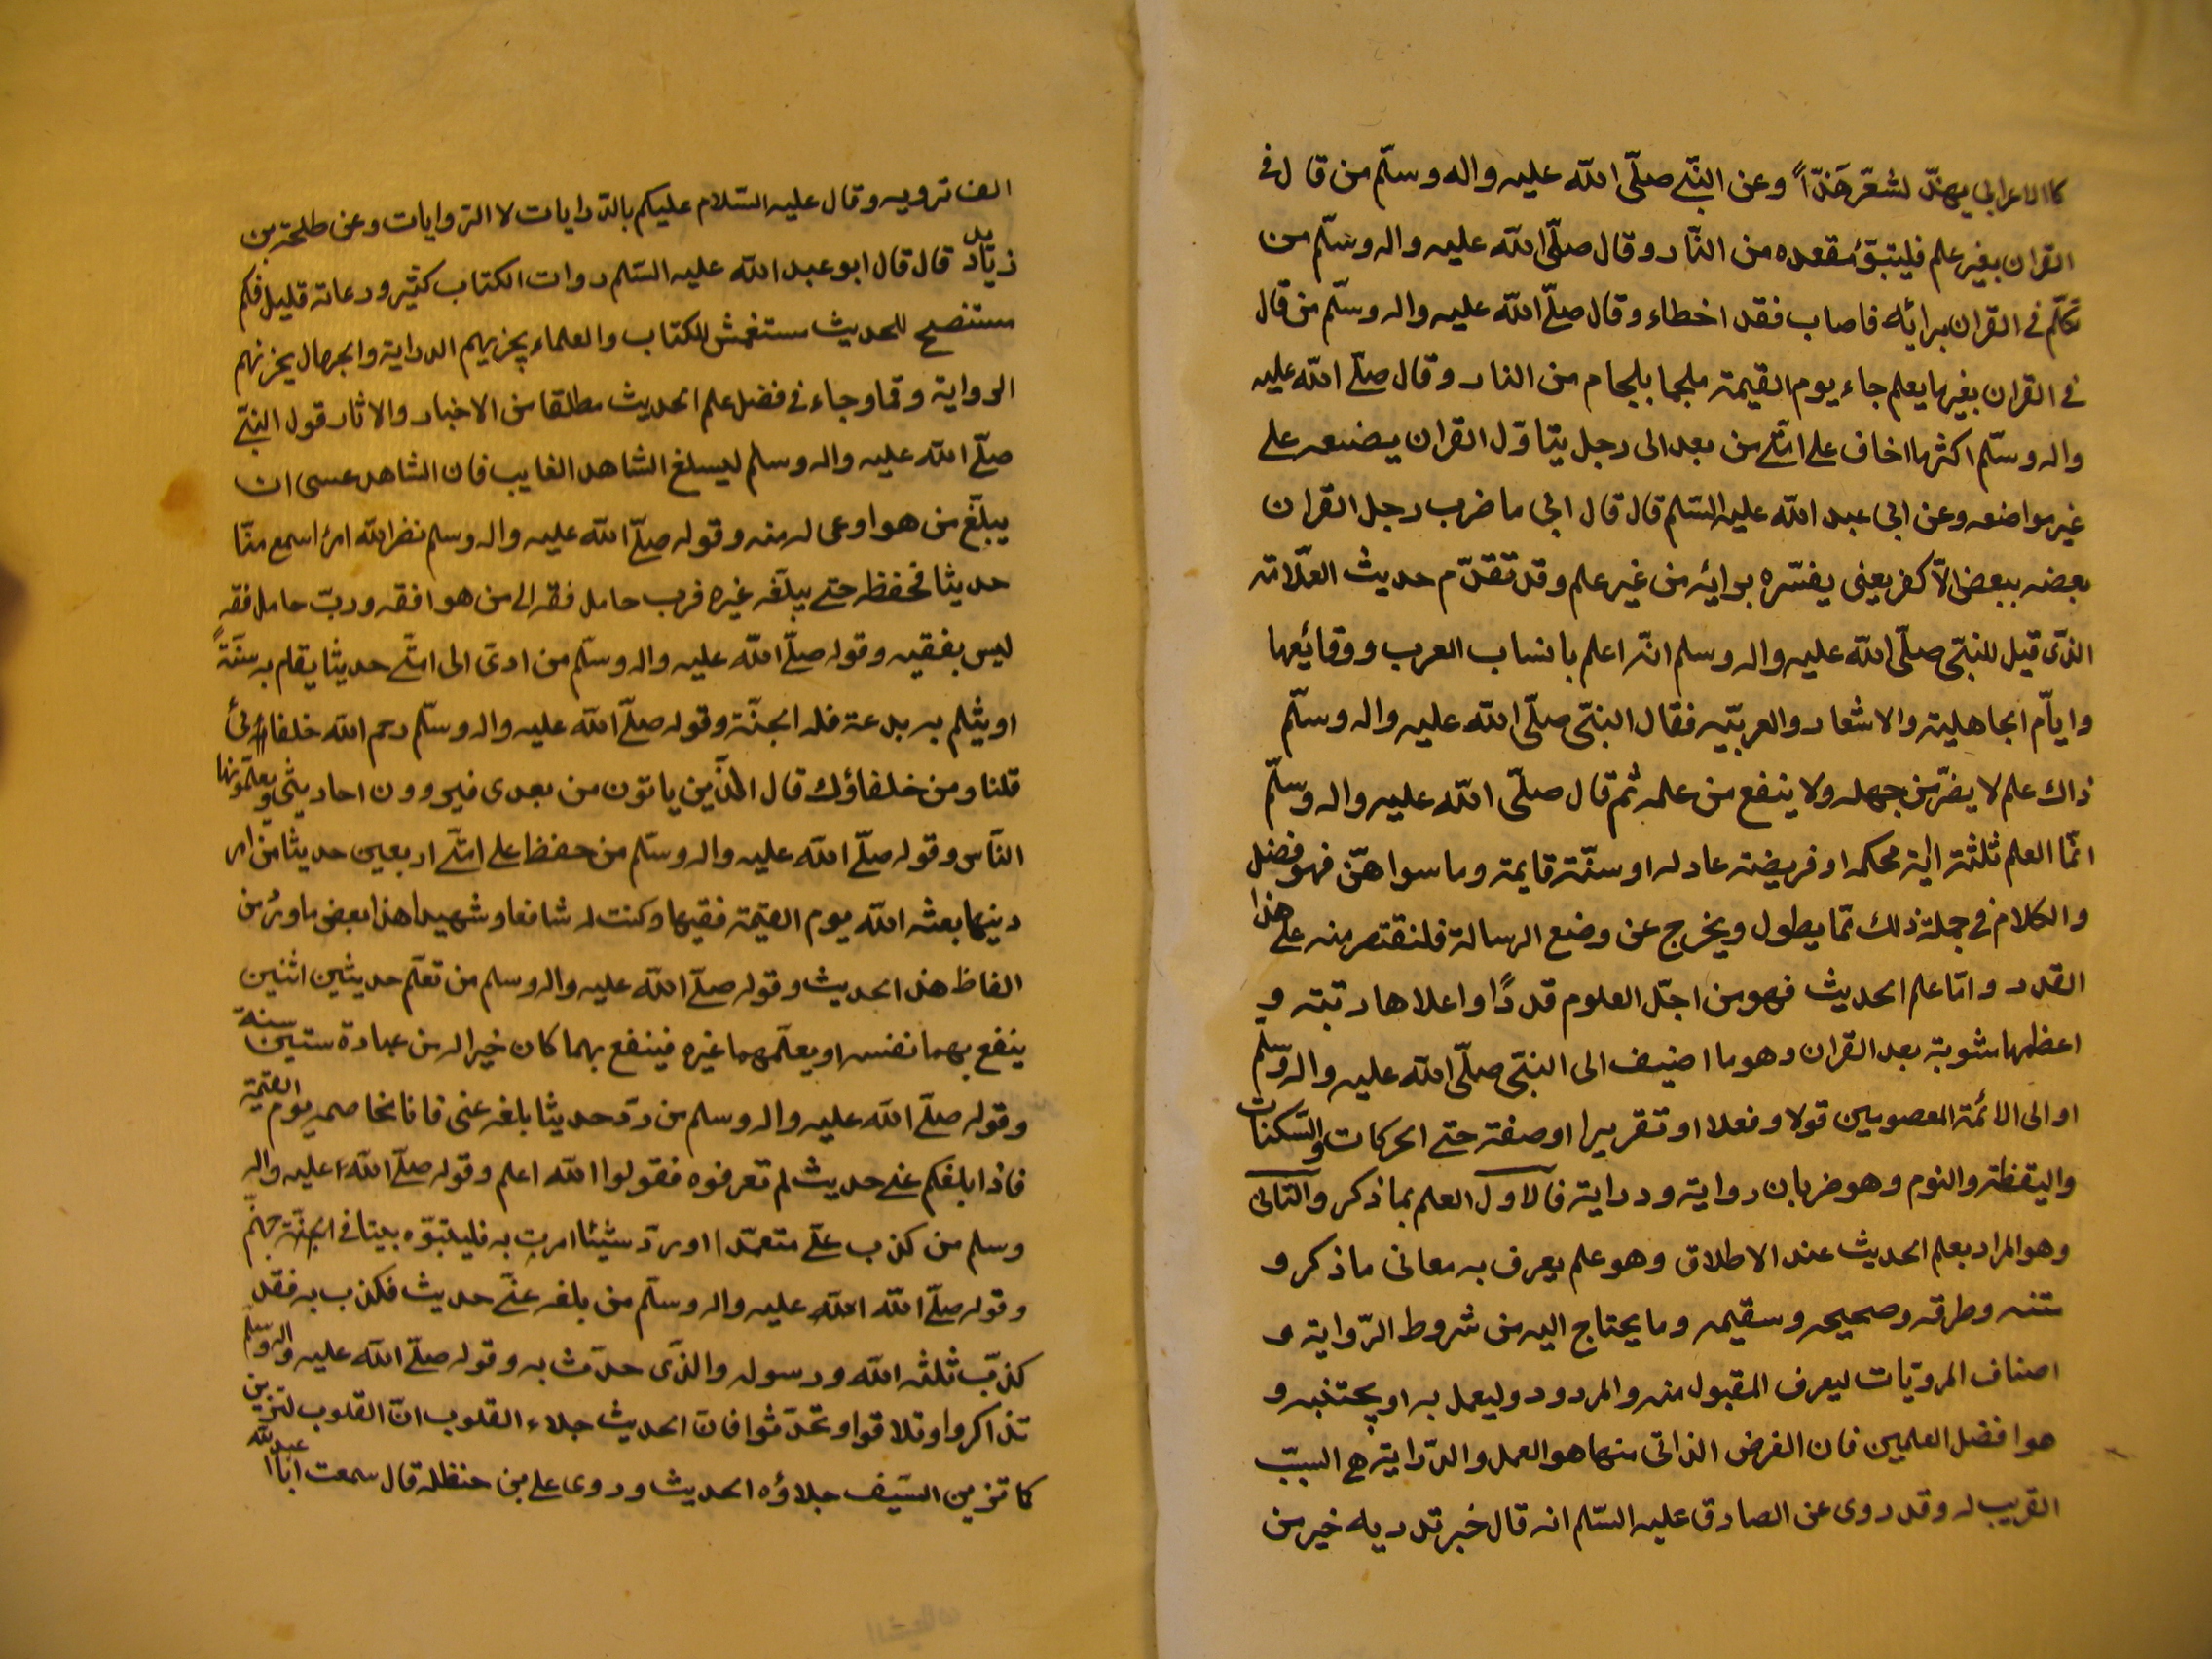 كالاعرابي يهذّ لشعر هَذّاً وعن النبّي صلّى الله عليه واله وسلّم من قال في
القران بغير علم فليتبوّء مقعده من النّار وقال صلّى الله عليه واله وسلّم من
تكلّم في القران برائه فاصاب فقد اخطاء وقال صلّى الله عليه واله وسلّم من قال
في القران بغير ما يعلم جاء يوم القيمة ملجما بلجام من النار وقال صلّى الله عليه
واله وسلّم اكثر ما اخاف على امّتي من بعدى رجل يتاوّل القران يضعه على
غير مواضعه وعن ابي عبد الله عليه السّلم قال قال ابي ما ضرب رجل القران
بعضه ببعض الّا كفر يعنى يفسّره برائه من غير علم وقد تقدّم حديث العلّامة
الذّى قيل للنبّي صلّى الله عليه واله وسلم انّه اعلم بانساب العرب ووقائعها
وايّام الجاهلية والاشعار والعربيّه فقال النبّي صلّى الله عليه واله وسلّم
ذاك علم لا يضرّ من جهله ولا ينفع من علمه ثم قال صلّى الله عليه واله وسلّم
انّما العلم ثلثة اية محكمه او فريضة عادله او سنّة قايمة وما سواهنّ فهو فضل
والكلام في جملة ذلك ممّا يطول ويخرج عن وضع الرسالة فلنقتصر منه على هذا
القدر وامّا علم الحديث فهو من اجلّ العلوم قدرًا واعلاها رتبته و
اعظمها مثوبة بعد القران وهو ما اضيف الى النبّي صلّى الله عليه واله وسلم
او الى الائمة المعصومين قولا وفعلا او تقريرا او صفة حتى الحركات والسّكنات
واليقظة والنوم وهو ضربان رواية ودراية فالاول العلم بما ذكر والثانى
وهو المراد بعلم الحديث عند الاطلاق وهو علم يعرف به معانى ما ذكر و
متنه وطرقه وصحيحه وسقيمه وما يحتاج اليه من شروط الرّواية و
اصناف المرويّات ليعرف المقبول منه والمردود وليعمل به او يجتنبه و
هو افضل العلمين فان الغرض الذاتى منهما هو العمل والدّراية هي السبب
القريب له وقد روى عن الصادق عليه السّلم انه قال خبر تدريه خير من
الف ترويه وقال عليه السّلام عليكم بالدّرايات لا الرّوايات وعن طلحة بن
زيد قال قال ابو عبد الله عليه السّلم روات الكتاب كثير ورعاته قليل فكم
مستنصح للحديث مستغش للكتاب والعلماء يحزنهم الدراية والجهال يحزنهم
الرواية وممّا وجاء في فضل علم الحديث مطلقا من الاخبار والاثار قول النبّي
صلّى الله عليه واله وسلم ليبلغ الشاهد الغايب فان الشاهد عسى ان
يبلّغ من هو اوعى له منه وقوله صلّى الله عليه واله وسلم نضر الله امرا سمع منّا
حديثا فحفظه حتى يبلّغه غيره فرب حامل فقه الى من هو افقه وربّ حامل فقه
ليس بفقيه وقوله صلّى الله عليه واله وسلّم من ادى الى امتّي حديثا يقام به سنّةً
او يثلم به بدعة فله الجنّة وقوله صلّى الله عليه واله وسلّم رحم الله خلفائى
قلنا ومن خلفاؤك قال الذّين ياتون من بعدى فيروون احاديثى ويعلّمونها
النّاس وقوله صلّى الله عليه واله وسلّم من حفظ على امتّي اربعين حديثا من امر
دينها بعثه الله يوم القيمة فقيها وكنت له شافعا وشهيدا هذا بعض ما ورد من
الفاظ هذا الحديث وقوله صلّى الله عليه واله وسلم من تعلّم حديثين اثنين
ينفع بهما نفسه او يعلّمهما غيره فينفع بهما كان خيرا له من عبادة ستين سنة
وقوله صلّى الله عليه واله وسلم من ردّ حديثا بلغه عنى فانا مخاصمه يوم القيمة
فاذا بلغكم عنى حديث لم تعرفوه فقولوا الله اعلم وقوله صلّى الله عليه واله
وسلم من كذب علّي متعمّدا او ردّ شيئا امرت به فليتبوّء بيتا في جهنّم
وقوله صلّى الله عليه واله وسلّم من بلغه عنّي حديث فكذب به فقد
كذّب ثلثه الله ورسوله والذّى حدّث به وقوله صلّى الله عليه واله وسلم
تذاكروا وتلاقوا وتحدّثوا فانّ الحديث جلاء القلوب انّ القلوب لترين
كما ترين السّيف جلاؤه الحديث وروى على بن حنظله قال سمعت ابا عبد الله